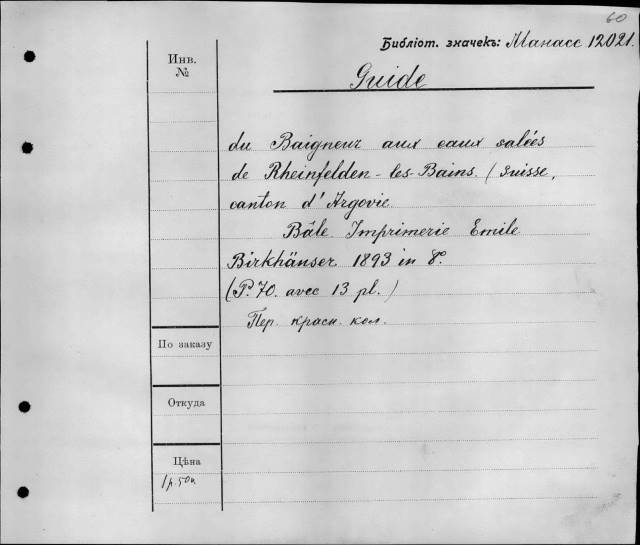 60
Библіот. значекъ: Манасс 12021.
Инв.
№
Guide
du Baigneur aux eaux salées
de Rheinfelden-les-Bains. (Suisse,
canton d'Argovie.
Bâle. Imprimerie Emile
Birkhäuser 1893 in 8°.
(P. 70. avec 13 pl.)
Пер. красн. кол.
По заказу
Откуда
Цѣна
1 р. 50 к.